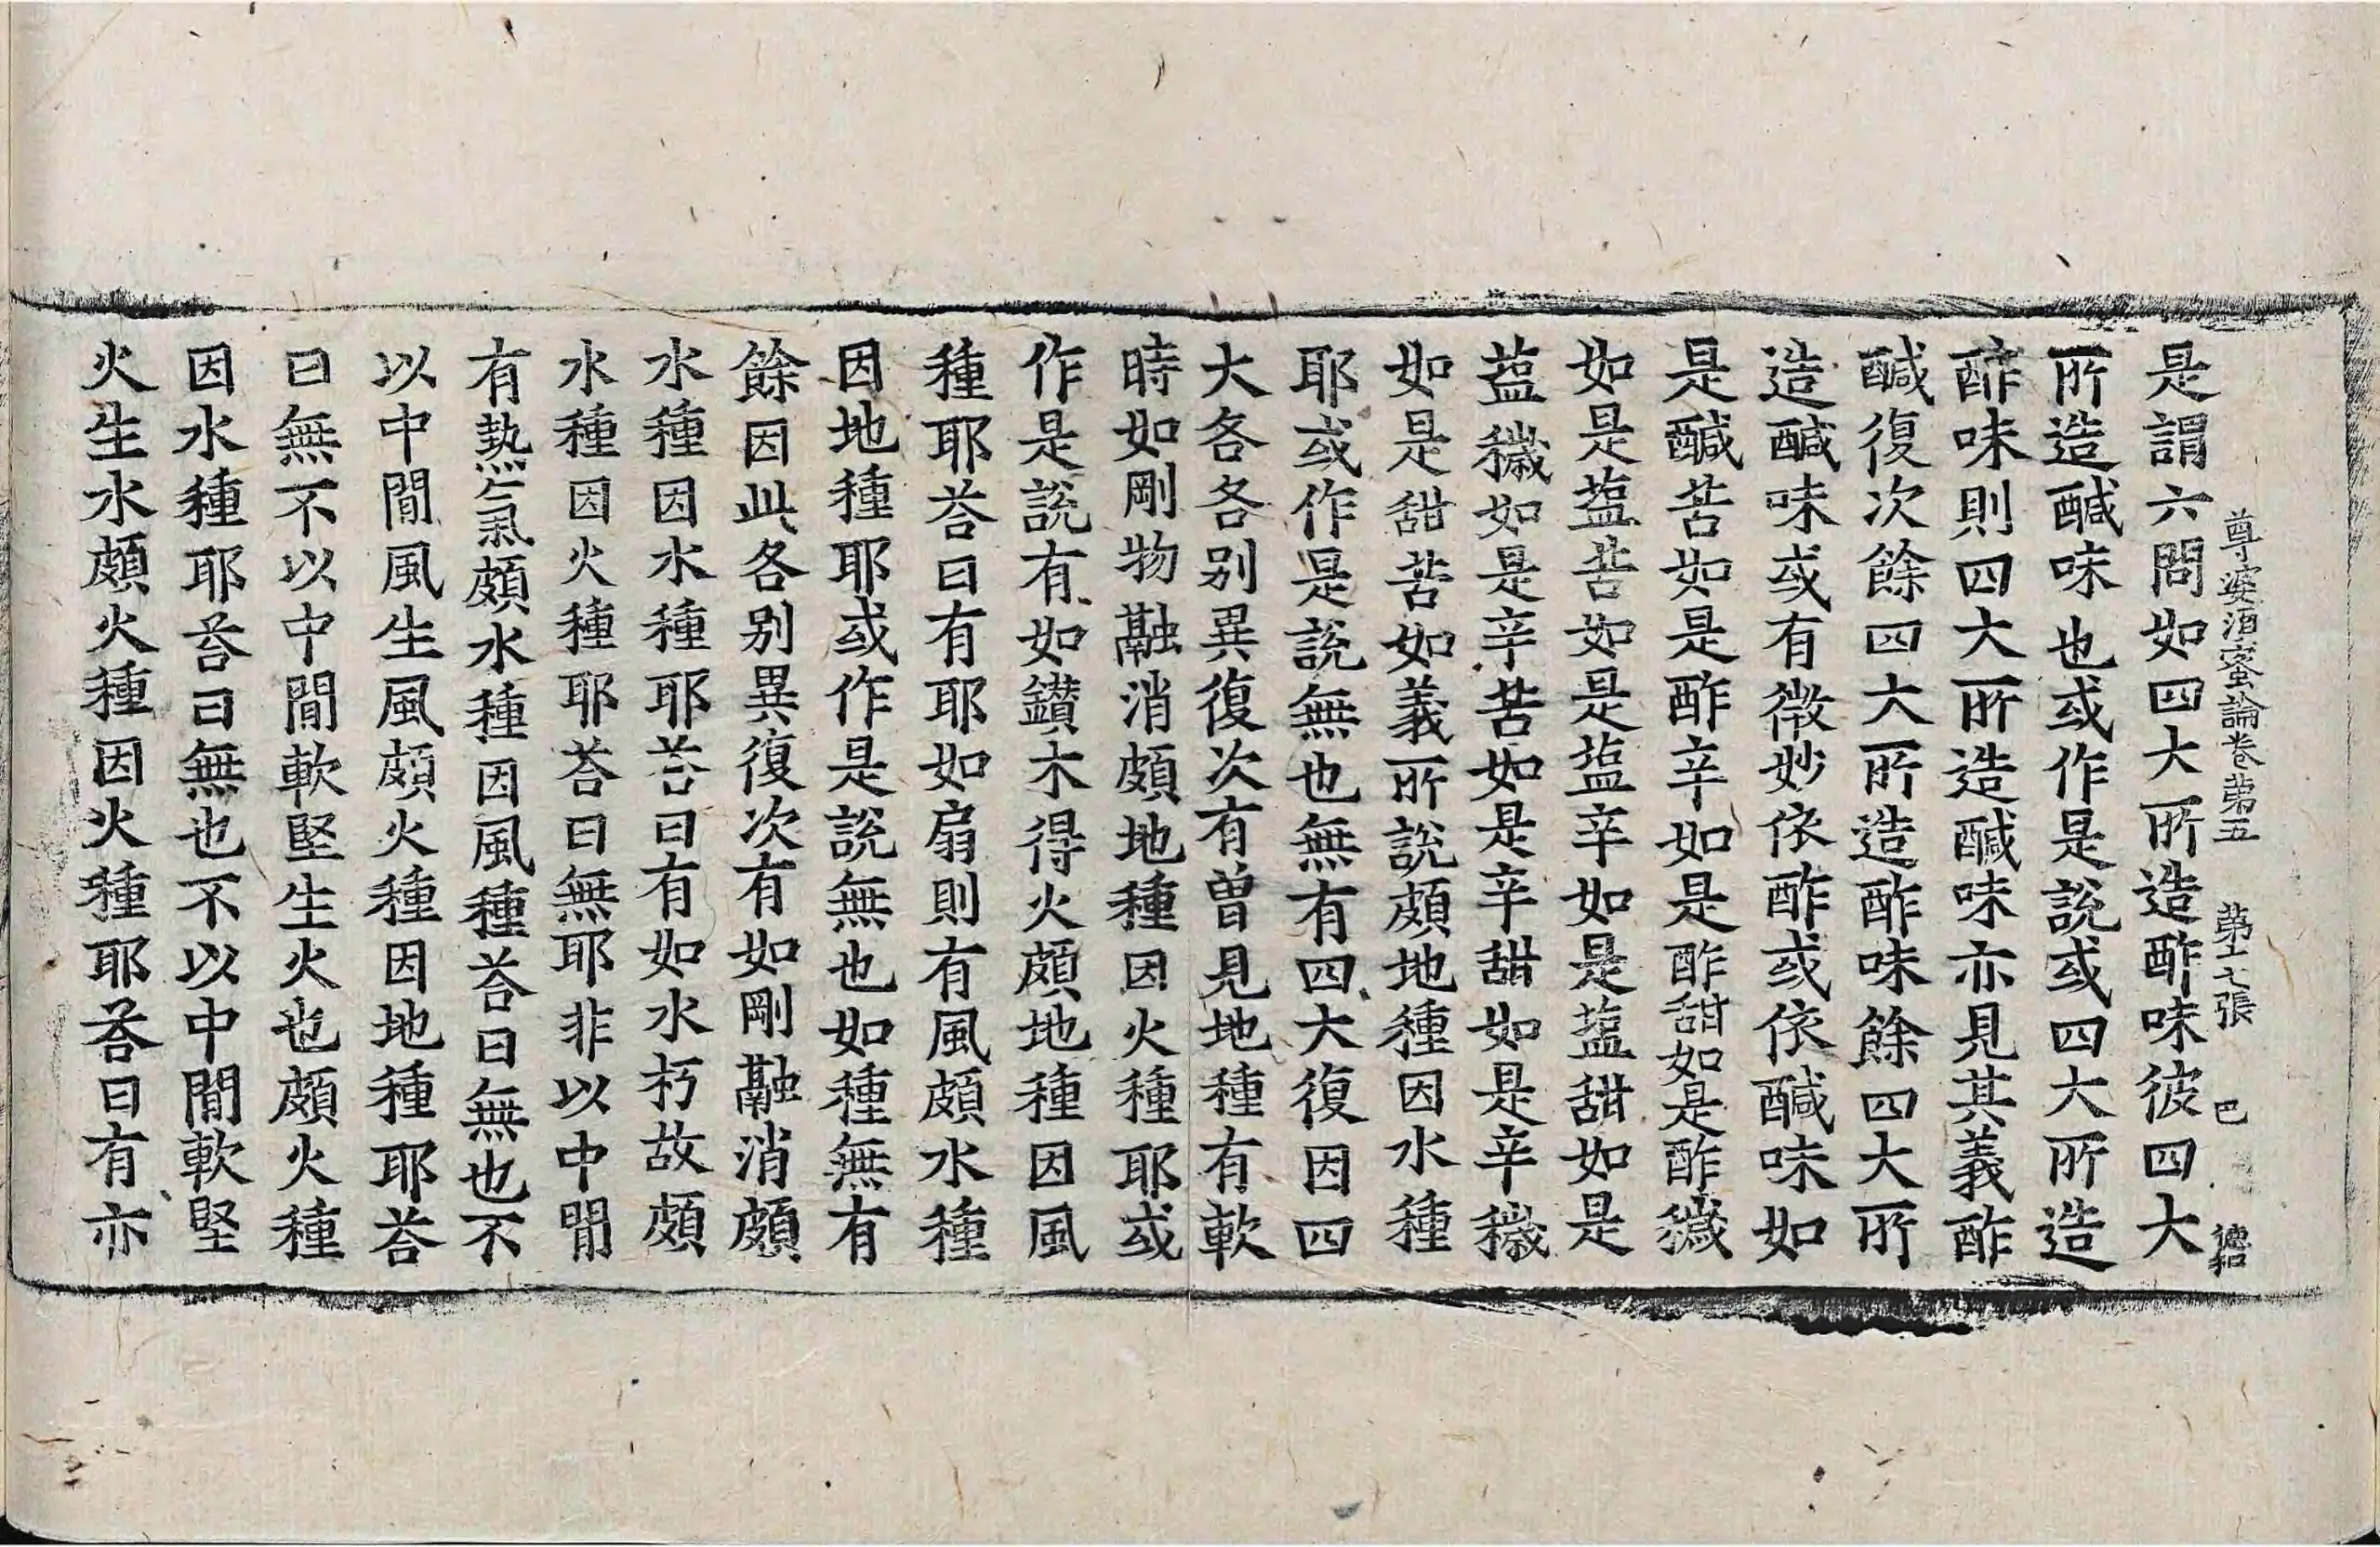 尊婆須蜜論卷第五　第十七張　巳
是謂六問如四大所造酢味彼四大
所造醎味也或作是說或四大所造
酢味則四大所造醎味亦見其義酢
醎復次餘四大所造酢味餘四大所
造醎味或有微妙依酢或依醎味如
是醎苦如是酢辛如是酢甜如是酢穢
如是塩苦如是塩辛如是塩甜如是
塩穢如是辛苦如是辛甜如是辛穢
如是甜苦如義所說頗地種因水種
耶或作是說無也無有四大復因四
大各各別異復次有曾見地種有軟
時如剛物融消頗地種因火種耶或
作是說有如鑚木得火頗地種因風
種耶荅曰有耶如扇則有風頗水種
因地種耶或作是說無也如種無有
餘因此各別異復次有如剛融消頗
水種因水種耶荅曰有如水朽故頗
水種因火種耶荅曰無耶非以中間
有熱氣頗水種因風種荅曰無也不
以中間風生風頗火種因地種耶荅
曰無不以中間軟堅生火也頗火種
因水種耶荅曰無也不以中間軟堅
火生水頗火種因火種耶荅曰有亦